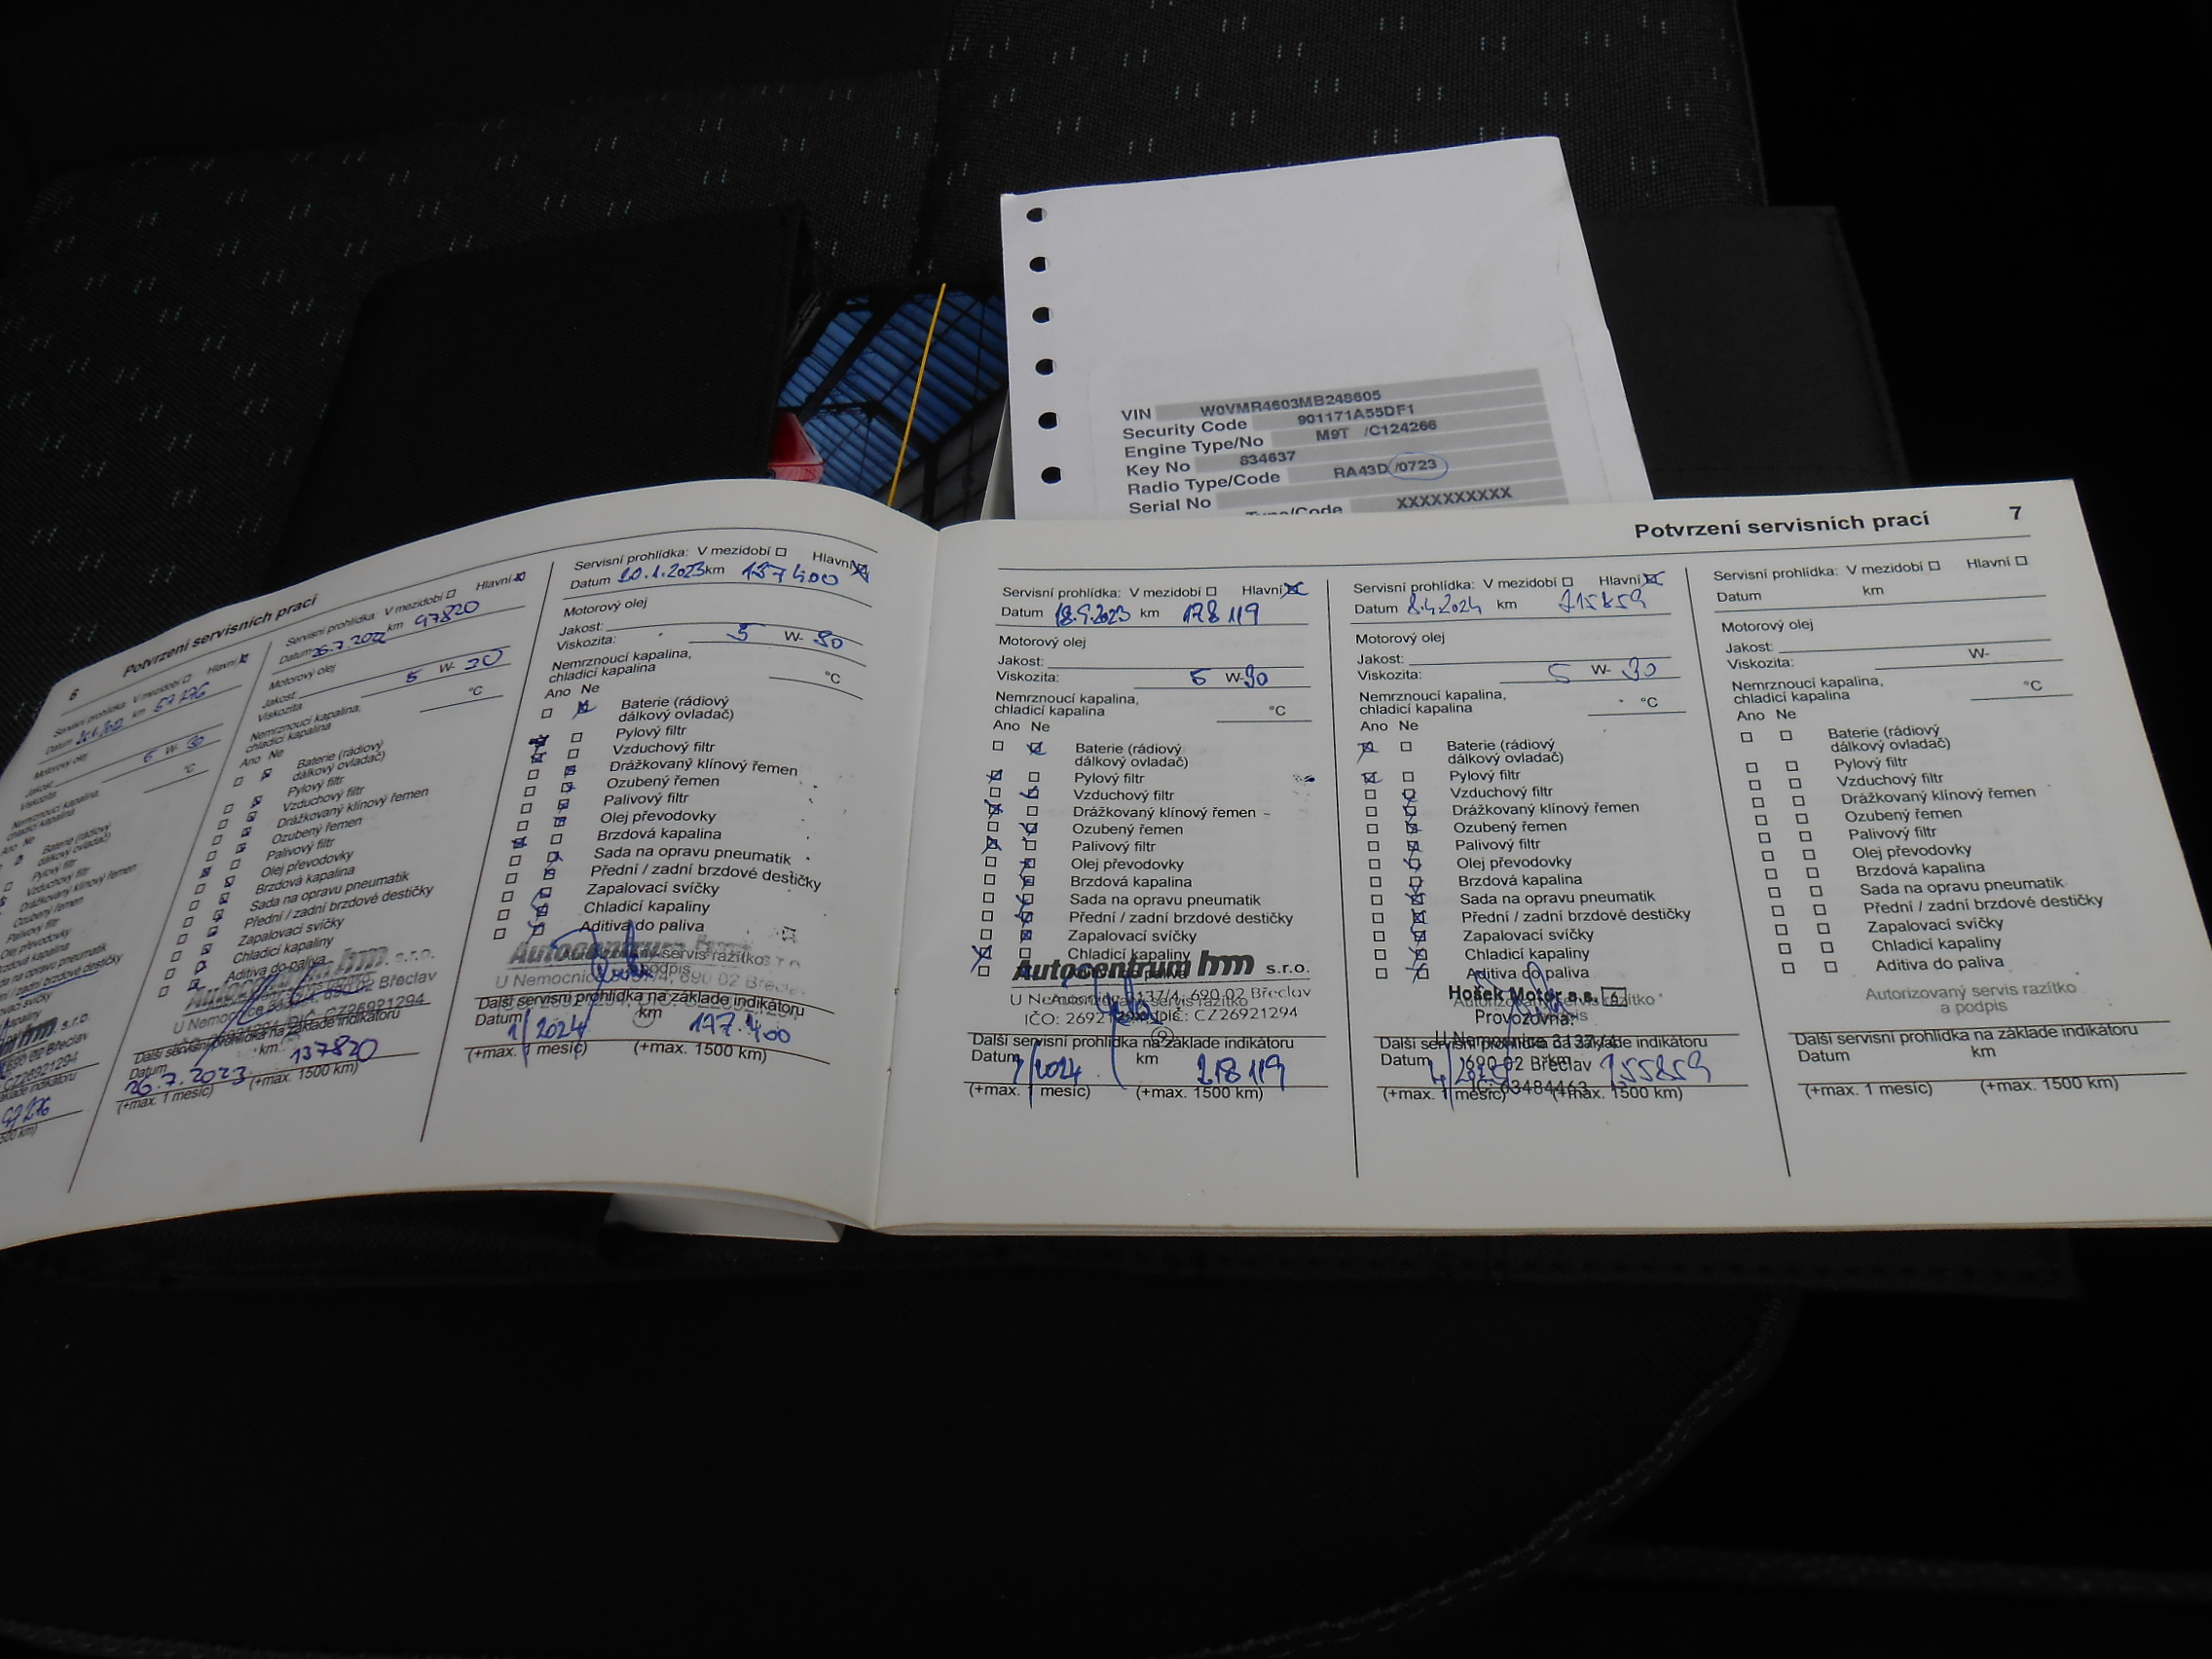 VIN W0VMR4603MB248605
Security Code 901171A55DF1
Engine Type/No M9T /C124266
Key No 834637
Radio Type/Code RA43D /0723
Serial No
Type/Code XXXXXXXXXX
6 Potvrzení servisních prací
Servisní prohlídka: V mezidobí Hlavní
Datum km 57276
Motorový olej
Jakost:
Viskozita: 5 W- 30
Nemrznoucí kapalina,
chladicí kapalina °C
Ano Ne
Baterie (rádiový
dálkový ovladač)
Pylový filtr
Vzduchový filtr
Drážkovaný klínový řemen
Ozubený řemen
Palivový filtr
Olej převodovky
Brzdová kapalina
Sada na opravu pneumatik
Přední / zadní brzdové destičky
Zapalovací svíčky
Chladicí kapaliny
hm s.r.o.
690 02 Břeclav
CZ26921294
97276
Servisní prohlídka: V mezidobí Hlavní
Datum 26.7.2022 km 97820
Motorový olej
Jakost:
Viskozita: 5 W- 30
Nemrznoucí kapalina,
chladicí kapalina °C
Ano Ne
Baterie (rádiový
dálkový ovladač)
Pylový filtr
Vzduchový filtr
Drážkovaný klínový řemen
Ozubený řemen
Palivový filtr
Olej převodovky
Brzdová kapalina
Sada na opravu pneumatik
Přední / zadní brzdové destičky
Zapalovací svíčky
Chladicí kapaliny
Aditiva do paliva
Autocentrum hm s.r.o.
U Nemocnice 690 02 Břeclav
DIČ: CZ26921294
Další servisní prohlídka na základě indikátoru
Datum km
26.7.2023 137820
(+max. 1 měsíc) (+max. 1500 km)
Servisní prohlídka: V mezidobí Hlavní
Datum 20.1.2023 km 137400
Motorový olej
Jakost:
Viskozita: 5 W- 30
Nemrznoucí kapalina,
chladicí kapalina °C
Ano Ne
Baterie (rádiový
dálkový ovladač)
Pylový filtr
Vzduchový filtr
Drážkovaný klínový řemen
Ozubený řemen
Palivový filtr
Olej převodovky
Brzdová kapalina
Sada na opravu pneumatik
Přední / zadní brzdové destičky
Zapalovací svíčky
Chladicí kapaliny
Aditiva do paliva
Autocentrum hm s.r.o.
U Nemocnice 3137/4, 690 02 Břeclav
Další servisní prohlídka na základě indikátoru
Datum km
1/2024 177.400
(+max. 1 měsíc) (+max. 1500 km)
Potvrzení servisních prací 7
Servisní prohlídka: V mezidobí Hlavní
Datum 18.9.2023 km 178 119
Motorový olej
Jakost:
Viskozita: 5 W- 30
Nemrznoucí kapalina,
chladicí kapalina °C
Ano Ne
Baterie (rádiový
dálkový ovladač)
Pylový filtr
Vzduchový filtr
Drážkovaný klínový řemen
Ozubený řemen
Palivový filtr
Olej převodovky
Brzdová kapalina
Sada na opravu pneumatik
Přední / zadní brzdové destičky
Zapalovací svíčky
Chladicí kapaliny
Autocentrum hm s.r.o.
U Nemocnice 3137/4, 690 02 Břeclav
IČO: 26921294 DIČ: CZ26921294
Další servisní prohlídka na základě indikátoru
Datum km
/2024 218 119
(+max. 1 měsíc) (+max. 1500 km)
Servisní prohlídka: V mezidobí Hlavní
Datum 8.4.2024 km 215859
Motorový olej
Jakost:
Viskozita: 5 W- 30
Nemrznoucí kapalina,
chladicí kapalina °C
Ano Ne
Baterie (rádiový
dálkový ovladač)
Pylový filtr
Vzduchový filtr
Drážkovaný klínový řemen
Ozubený řemen
Palivový filtr
Olej převodovky
Brzdová kapalina
Sada na opravu pneumatik
Přední / zadní brzdové destičky
Zapalovací svíčky
Chladicí kapaliny
Aditiva do paliva
Hošek Motor a.s. 6
Provozovna:
U Nemocnice 3137/4
Další servisní prohlídka na základě indikátoru
690 02 Břeclav
Datum km 255859
IČ: 63484463
(+max. 1 měsíc) (+max. 1500 km)
Servisní prohlídka: V mezidobí Hlavní
Datum km
Motorový olej
Jakost:
Viskozita: W-
Nemrznoucí kapalina,
chladicí kapalina °C
Ano Ne
Baterie (rádiový
dálkový ovladač)
Pylový filtr
Vzduchový filtr
Drážkovaný klínový řemen
Ozubený řemen
Palivový filtr
Olej převodovky
Brzdová kapalina
Sada na opravu pneumatik
Přední / zadní brzdové destičky
Zapalovací svíčky
Chladicí kapaliny
Aditiva do paliva
Autorizovaný servis razítko
a podpis
Další servisní prohlídka na základě indikátoru
Datum km
(+max. 1 měsíc) (+max. 1500 km)